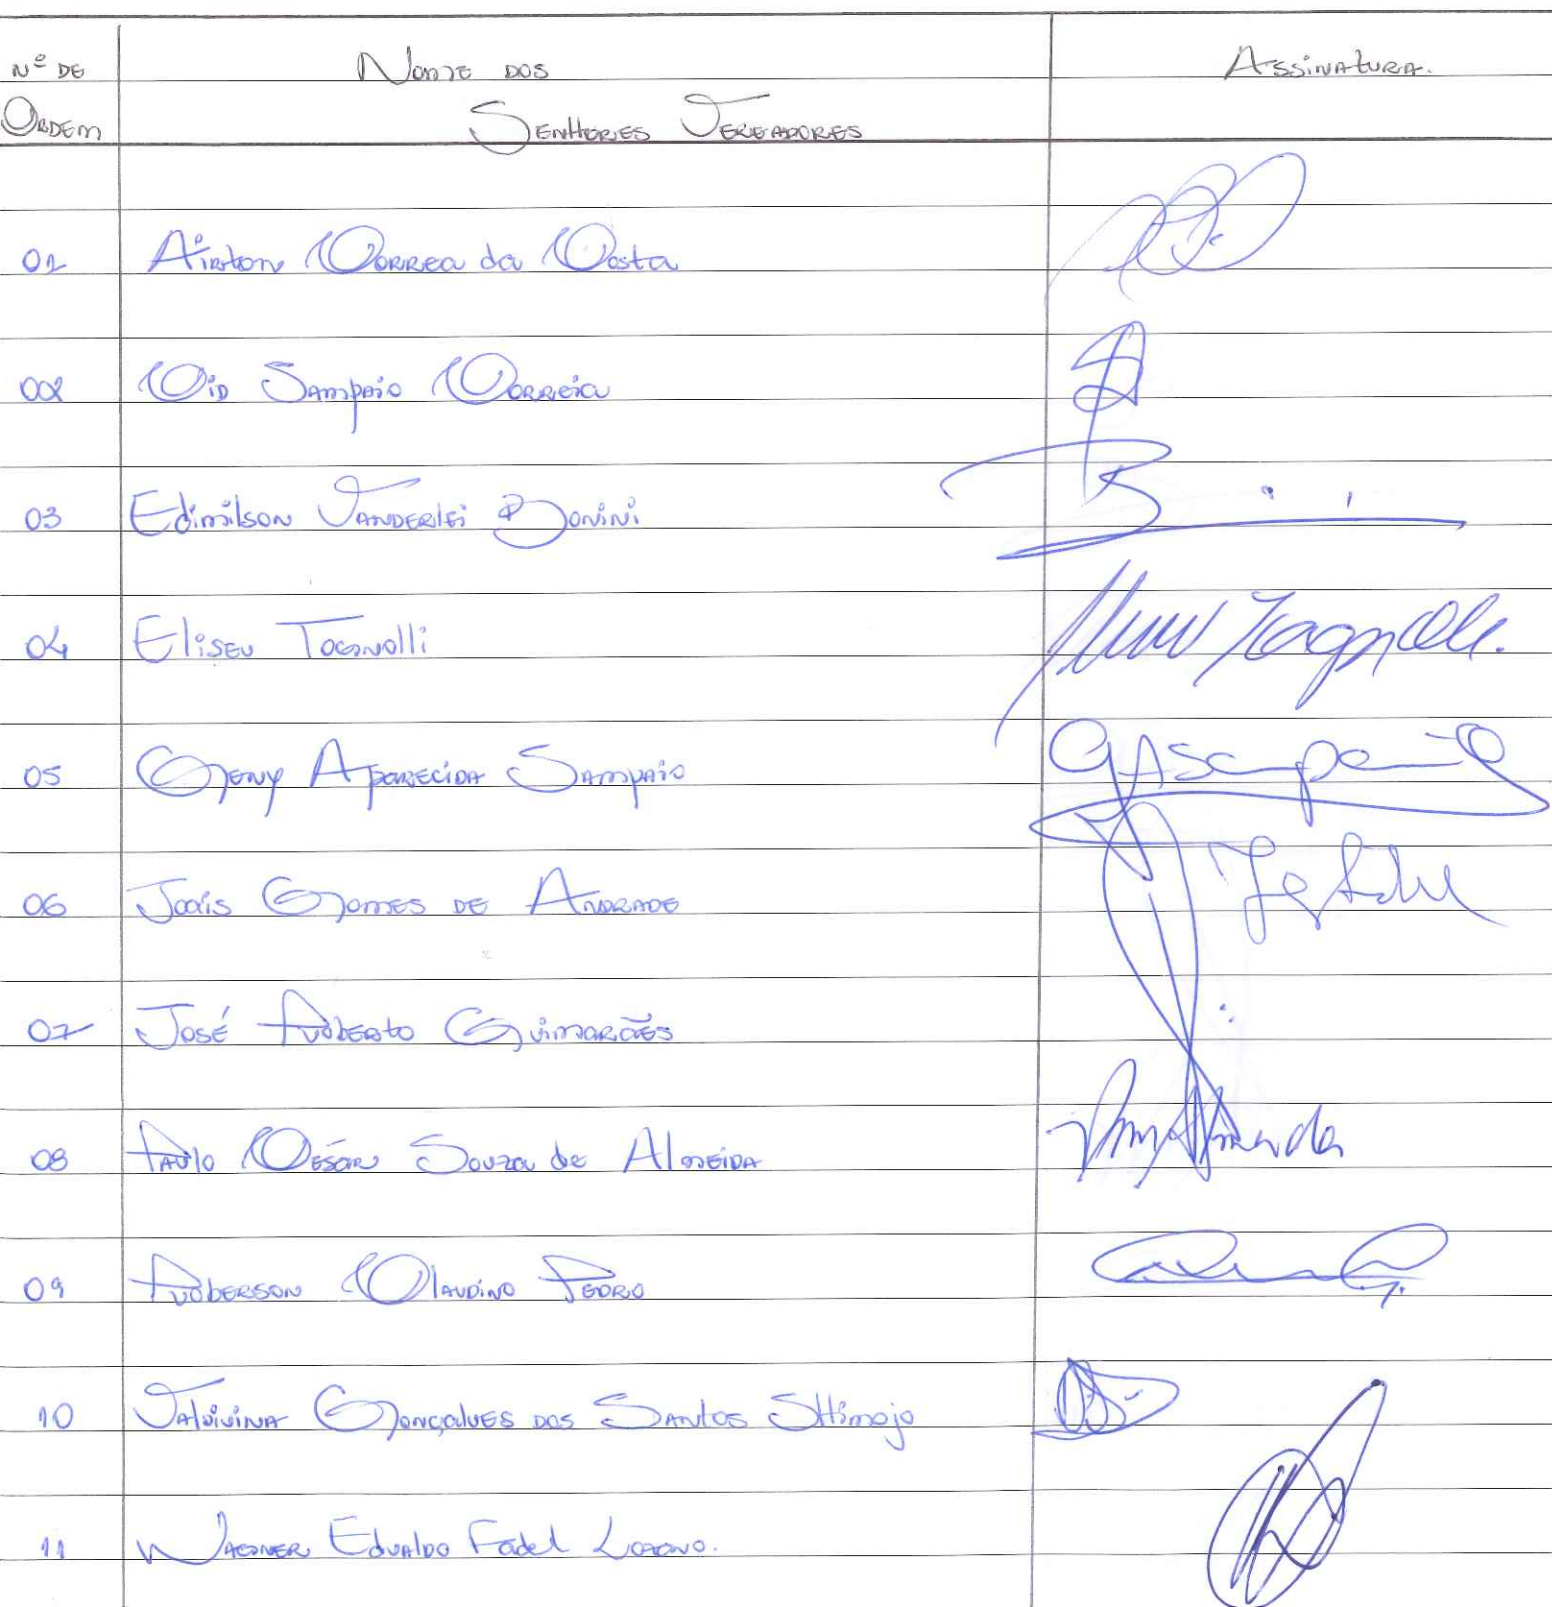 Nº DE Nome dos Assinatura.
Ordem Senhores Vereadores
01 Airton Correa da Costa
02 Cid Sampaio Correia
03 Edimilson Vanderlei Bonini
04 Eliseu Tognolli
05 Geny Aparecida Sampaio
06 Joais Gomes de Andrade
07 José Roberto Guimarães
08 Paulo César Souza de Almeida
09 Roberson Claudino Pedro
10 Valdivina Gonçalves dos Santos SHimojo
11 Wagner Edvaldo Fadel Lozano.